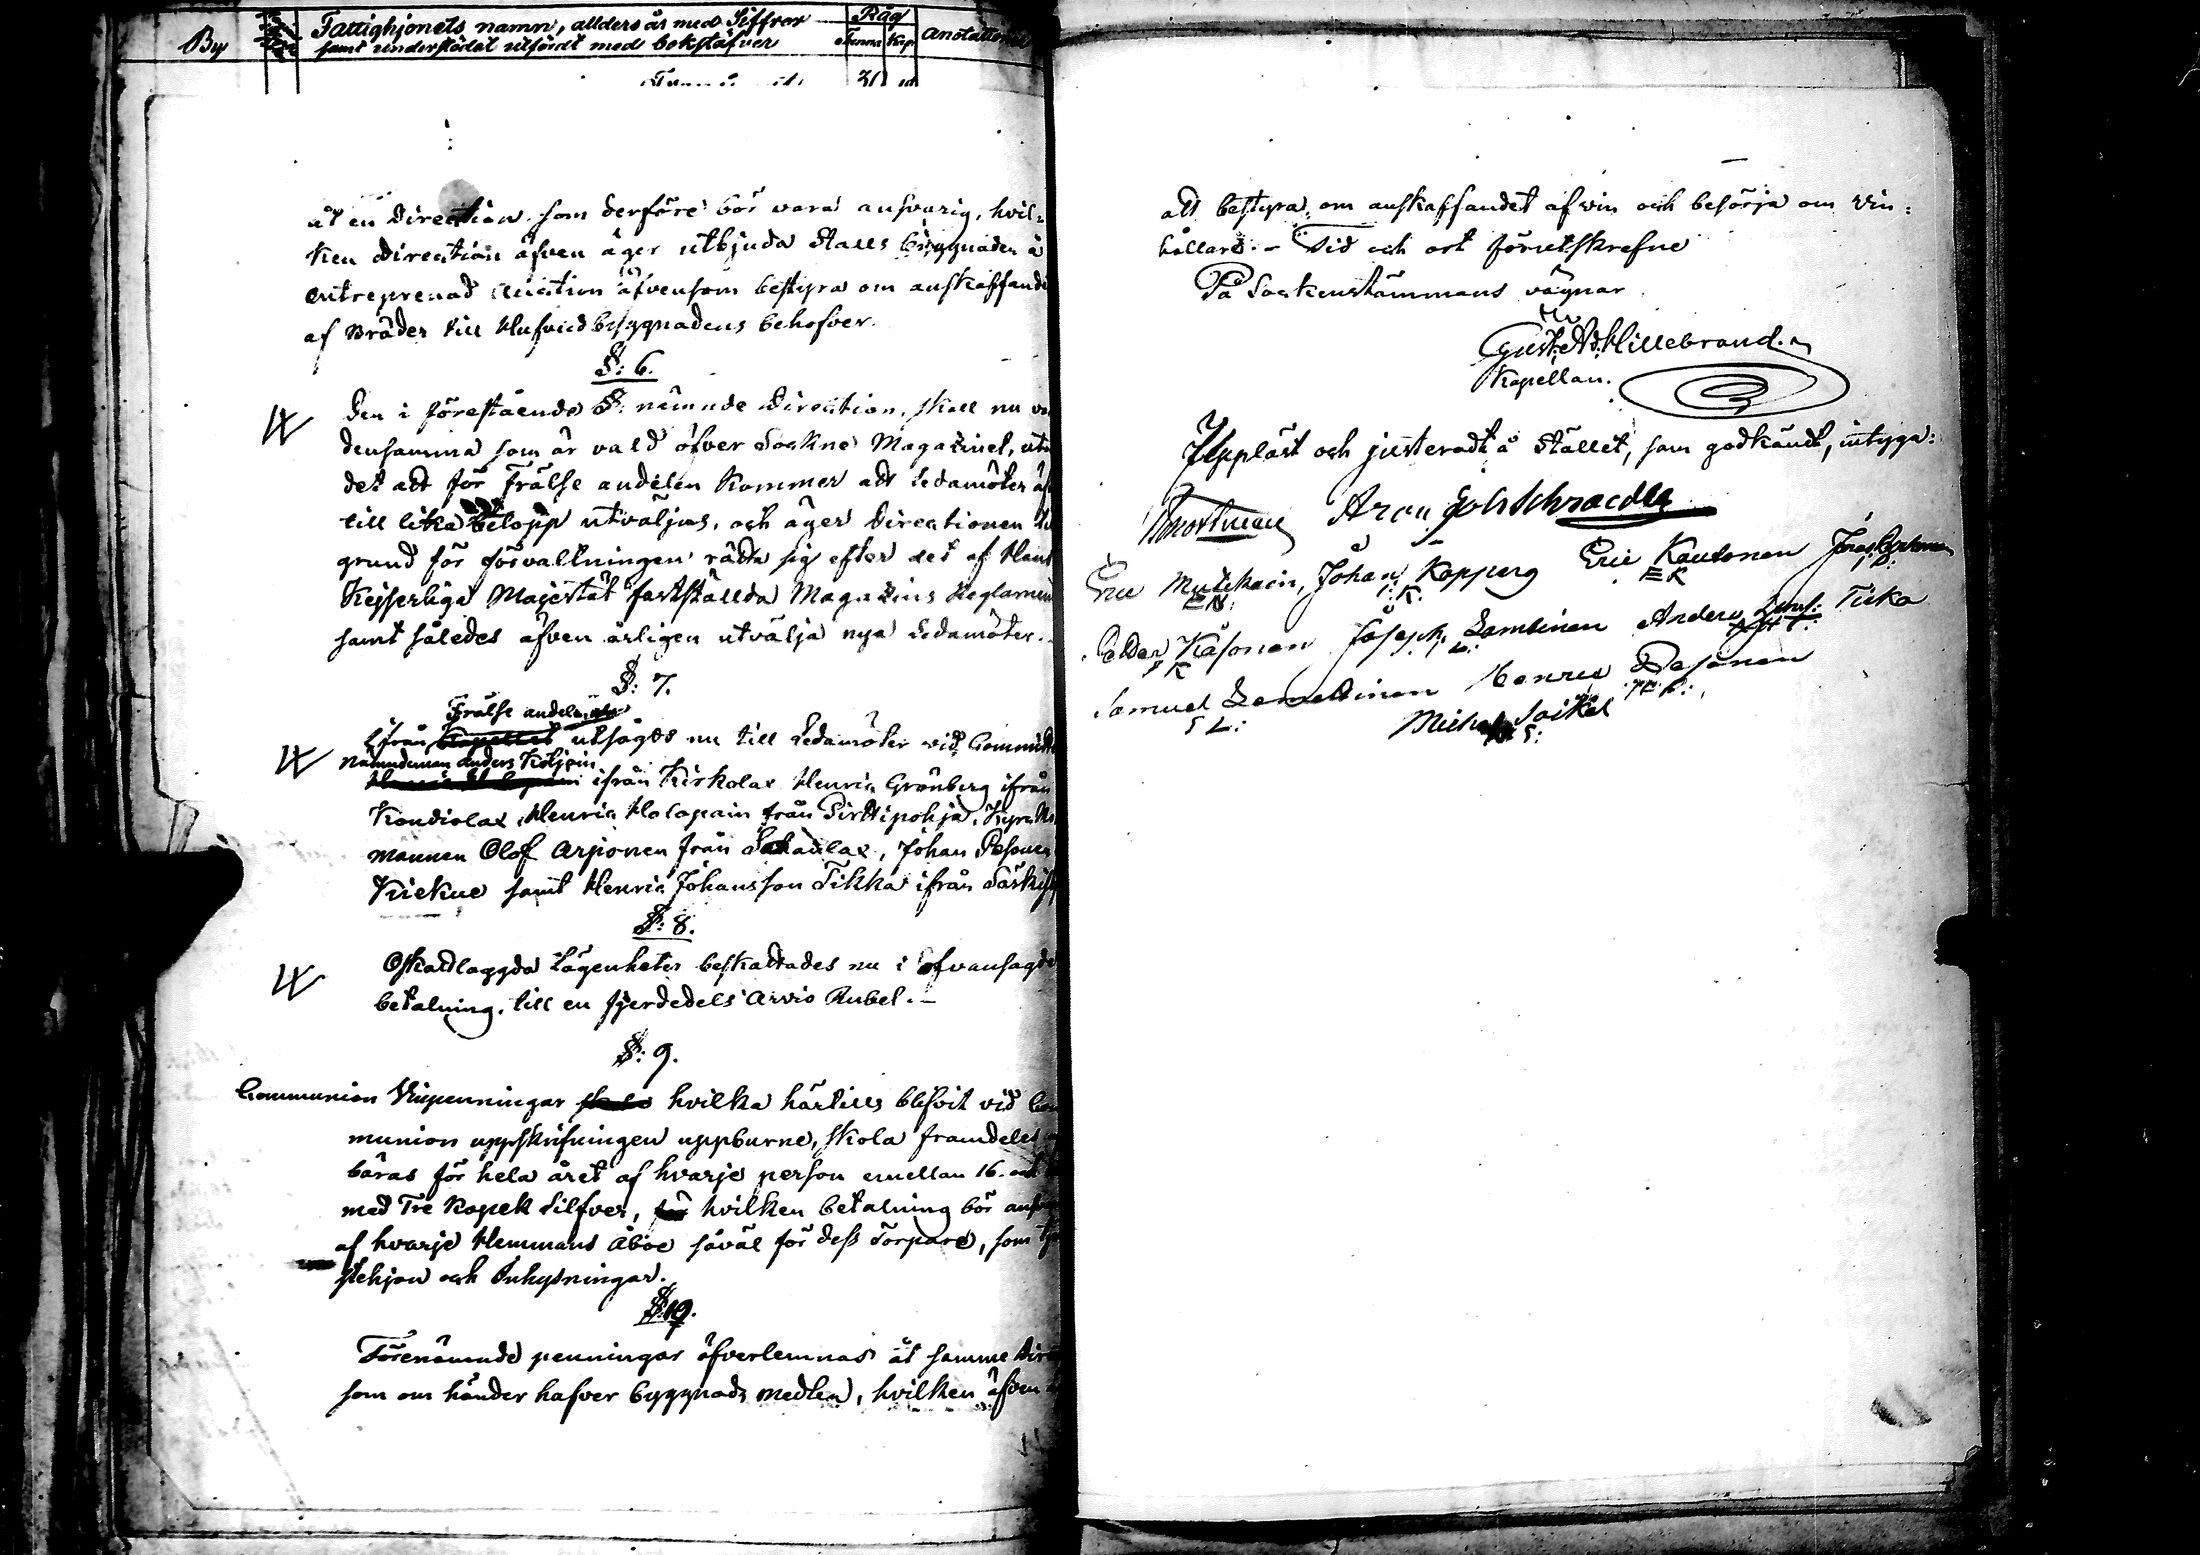 By
Fattighjonets namn, allders år med Siffror
samt understödet utfördt med bokstäfver
Råg
Tunna Kap
Anotationer
31
åt en Direction, som derföre bör vara ansvarig, hvil=
ken Direction äfven äger utbjuda Stalls byggnaden å
entreprenad Auction äfvensom bestyra om anskaffande
af Bräder till Hufvudbyggnadens behofver.
§: 6.
Den i förestående §: nämnde Direction, skall nu
densamma som är vald öfver Sockne Magazinet,
det att för Frälse andelen kommer att Ledamöter
till lika belopp utväljas, och äger Directionen
grund för förvaltningen rätta sig efter det af Hans
Kejserliga Majestät fastställda Magazins Reglamen
samt således äfven årligen utvälja nya Ledamöter.
§: 7.
Frälse andelen
Ifrån utsågos nu till Ledamöter vid Committ
Nämndeman Anders Kötjoin
ifrån Kirkolax Henric Grönberg ifrån
Kondiolax, Henric Holopain från Pirttipohja, Kyrko
mannen Olof Arjonen från Sakaulax, Johan Pesonen
Kiekue samt Henric Johansson Tikka ifrån Särkis
§: 8.
Oskattlaggda Lägenheter beskattades nu i ofvansagde
betalning, till en fjerdedels Arvio Rubel. -
§: 9.
Communion Vinpenningar hvilka härtills blifvit vid Com
munion uppskrifningen uppburne, skola framdeles
bäras för hela året af hvarje person emellan 16. och
med Tre Kopek Silfver, hvilken betalning bör ansv
af hvarje Hemmans Åboe såväl för dess Torpare, som tje
stehjon och Inhysningar.
§: 10.
Förenämnde penningar öfverlemnas åt samme Dire
som om händer hafver byggnads medlen, hvilken äfven
att bestyra om anskaffandet af vin och besörja om vin=
hållare. - Tid och ort förutskrefne
På Sockenstämmans vägnar
Gust. Ad. Hillebrand.
Kapellan.
Uppläst och justeradt å Stället, som godkändt, intyga:
Aron Joh Schroeder
Eric Mutikain, Johan Kopperg Eric Kautonen
E M: I: K. E K
Petter Käsonen Joseph Lamminen Anders Tikka
P K I: L:
Samuel Lamminen Henric Pesonen
S L: H: P:
Michel Soikel
M S: